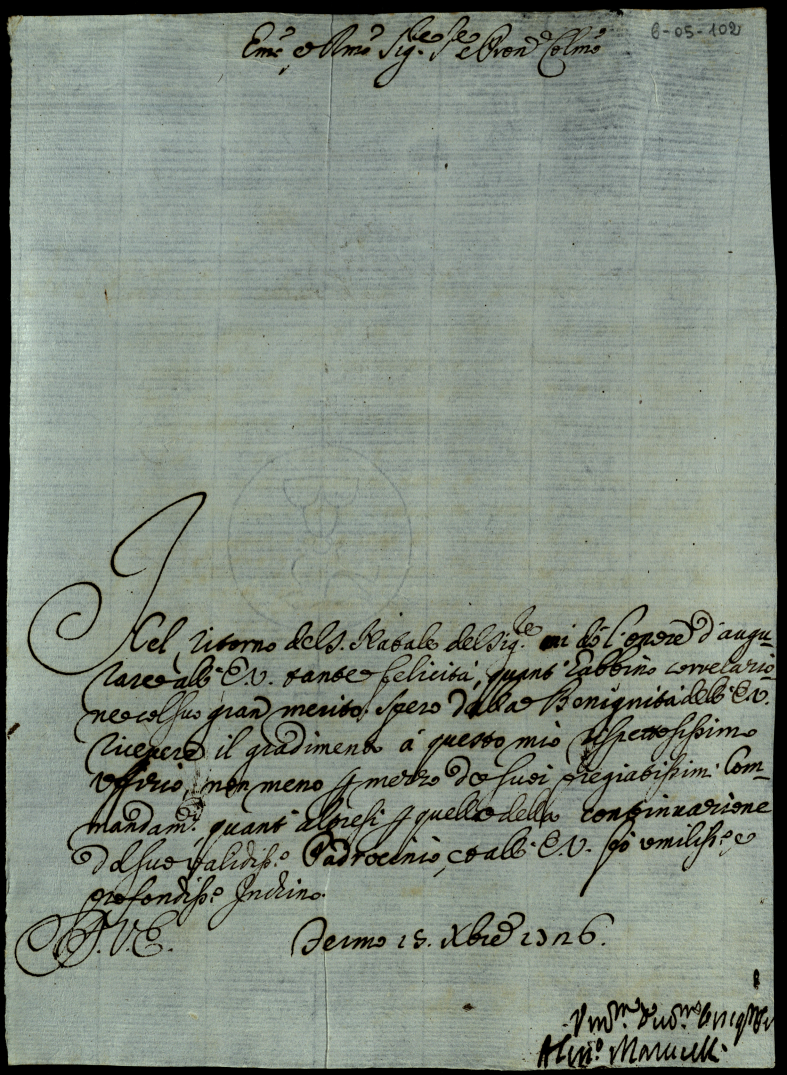 6-05-102
Em̃o e Rmõ Sig.re Sig.re e Pron Colmo
Nel ritorno del S. Natale del Sig.re mi dò l'onore d'augu-
rare all' E.V. tante felicità, quant'
ne col suo gran merito. Spero dalla Benignità dell' E.V.
ricevere il gradimento à questo mio rispettosissimo
Uffizio, non meno p mezzo de suoi pregiatissimi Com-
mandam.ti quant' altresi p quello della continuazione
del suo validiss.o Padrocinio, et all' E.V. fò umiliss.o, e
profondiss.o Inchino.
D. V. E. Fermo 15. Xbre 1726.
Um.mo Deu.mo
Marucelli